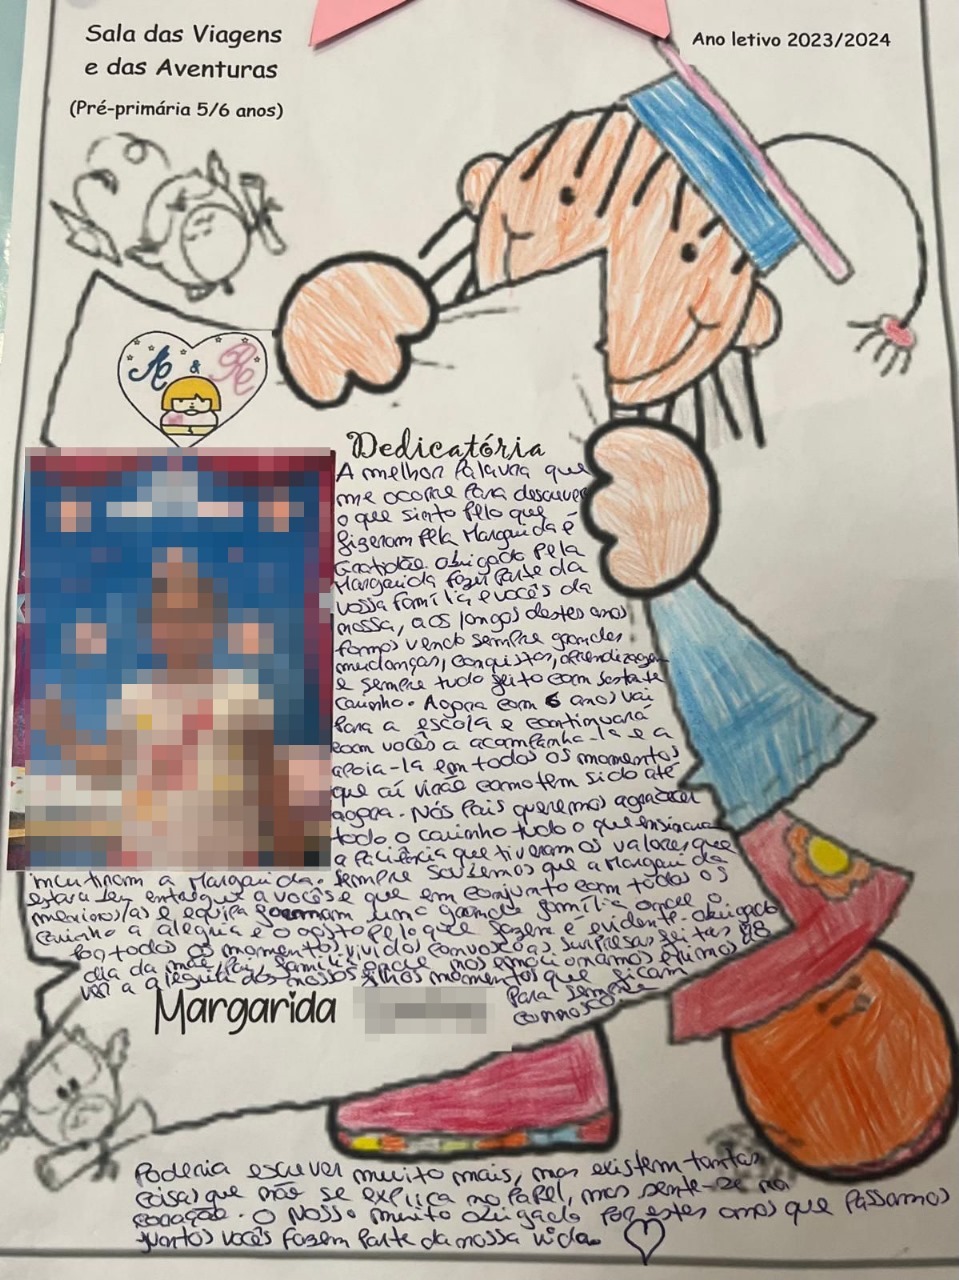 Sala das Viagens
e das Aventuras
(Pré-primária 5/6 anos)
Ano letivo 2023/2024
A & R
Dedicatória
A melhor Palavra que
me ocorre Para descrever
o que sinto Pelo que
fizeram Pela Margarida é
Gratidão obrigada Pela
Margarida fazer Parte da
vossa família e vocês da
nossa, aos longos destes anos
fomos vendo sempre grandes
mudanças, conquistas, aprendizagem
e sempre tudo feito com tanto
carinho. Agora com 6 anos vai
Para a escola e continuará
com vocês a acompanha-la e a
apoia-la em todos os momentos
que aí virão como tem sido até
agora. Nós Pais queremos agradecer
todo o carinho tudo o que ensinaram
a Paciência que tiveram os valores que
incutiram a Margarida. Sempre soubemos que a Margarida
estava bem entregue a vocês e que em conjunto com todos os
meninos/as e equipa formam uma grande família onde o
carinho a alegria e o gosto pelo que fazem é evidente. obrigado
Por todos os momentos vividos convosco, as surpresas feitas
dia da mãe, Pai, família onde nos emocionamos e
ver a alegria dos nossos filhos momentos que ficam
Para sempre
connosco.
Margarida
Poderia escrever muito mais, mas existem tantas
coisas que não se explica no Papel, mas sente-se no
coração. O Nosso muito obrigado Por estes anos que Passamos
juntos vocês fazem Parte da nossa vida.